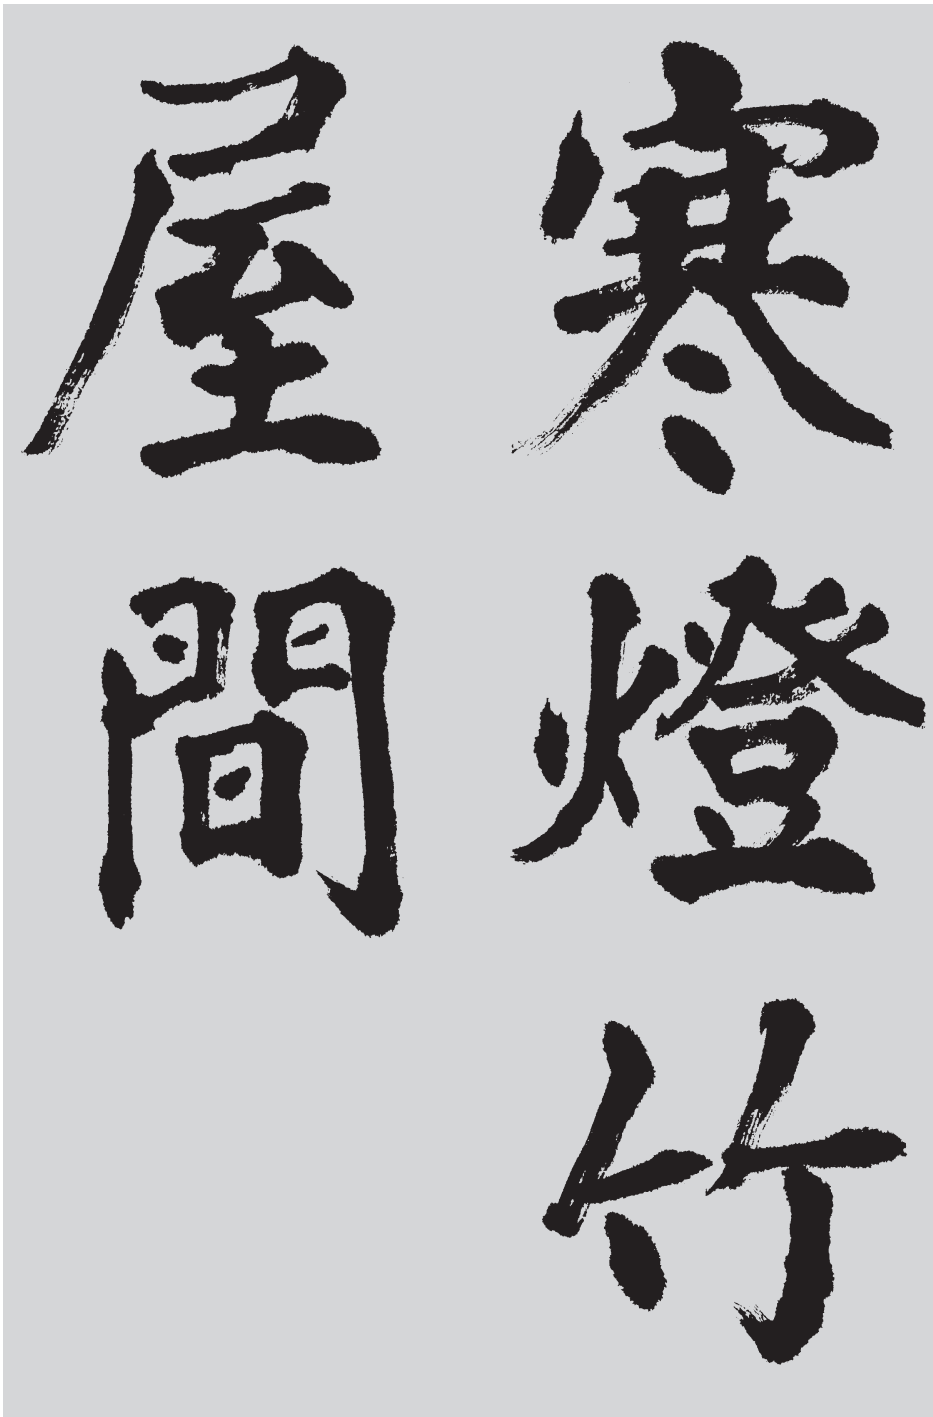 寒燈竹
屋間